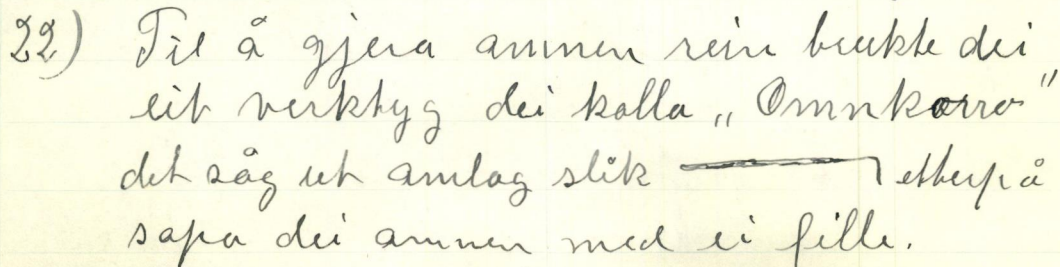 22) Til å gjera ammen rein brukte dei
eit verktyg dei kalla „Omnkorro"
det såg ut amlag slik etterpå
sopa dei ammen med ei fille.